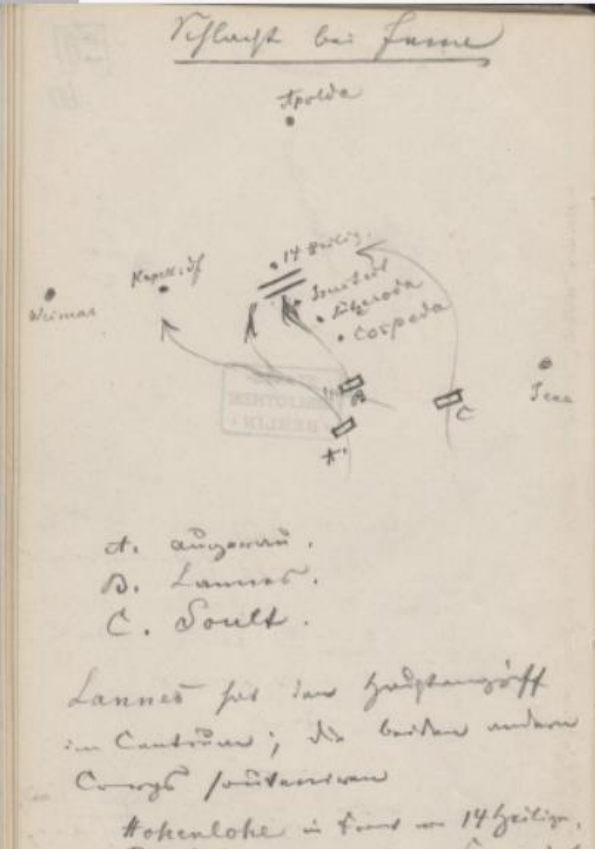 Schlacht bei Jena
Apolda
14 Heilig.
Kapellendf
Isserstedt
Lützeroda
Cospeda
Weimar
Jena
B
C
A.
A. Augereau.
B. Lannes.
C. Soult.
Lannes hat den Hauptangriff
im Centrum; die beiden andern
Corps soutenieren
Hohenlohe in Front von 14 Heilign,